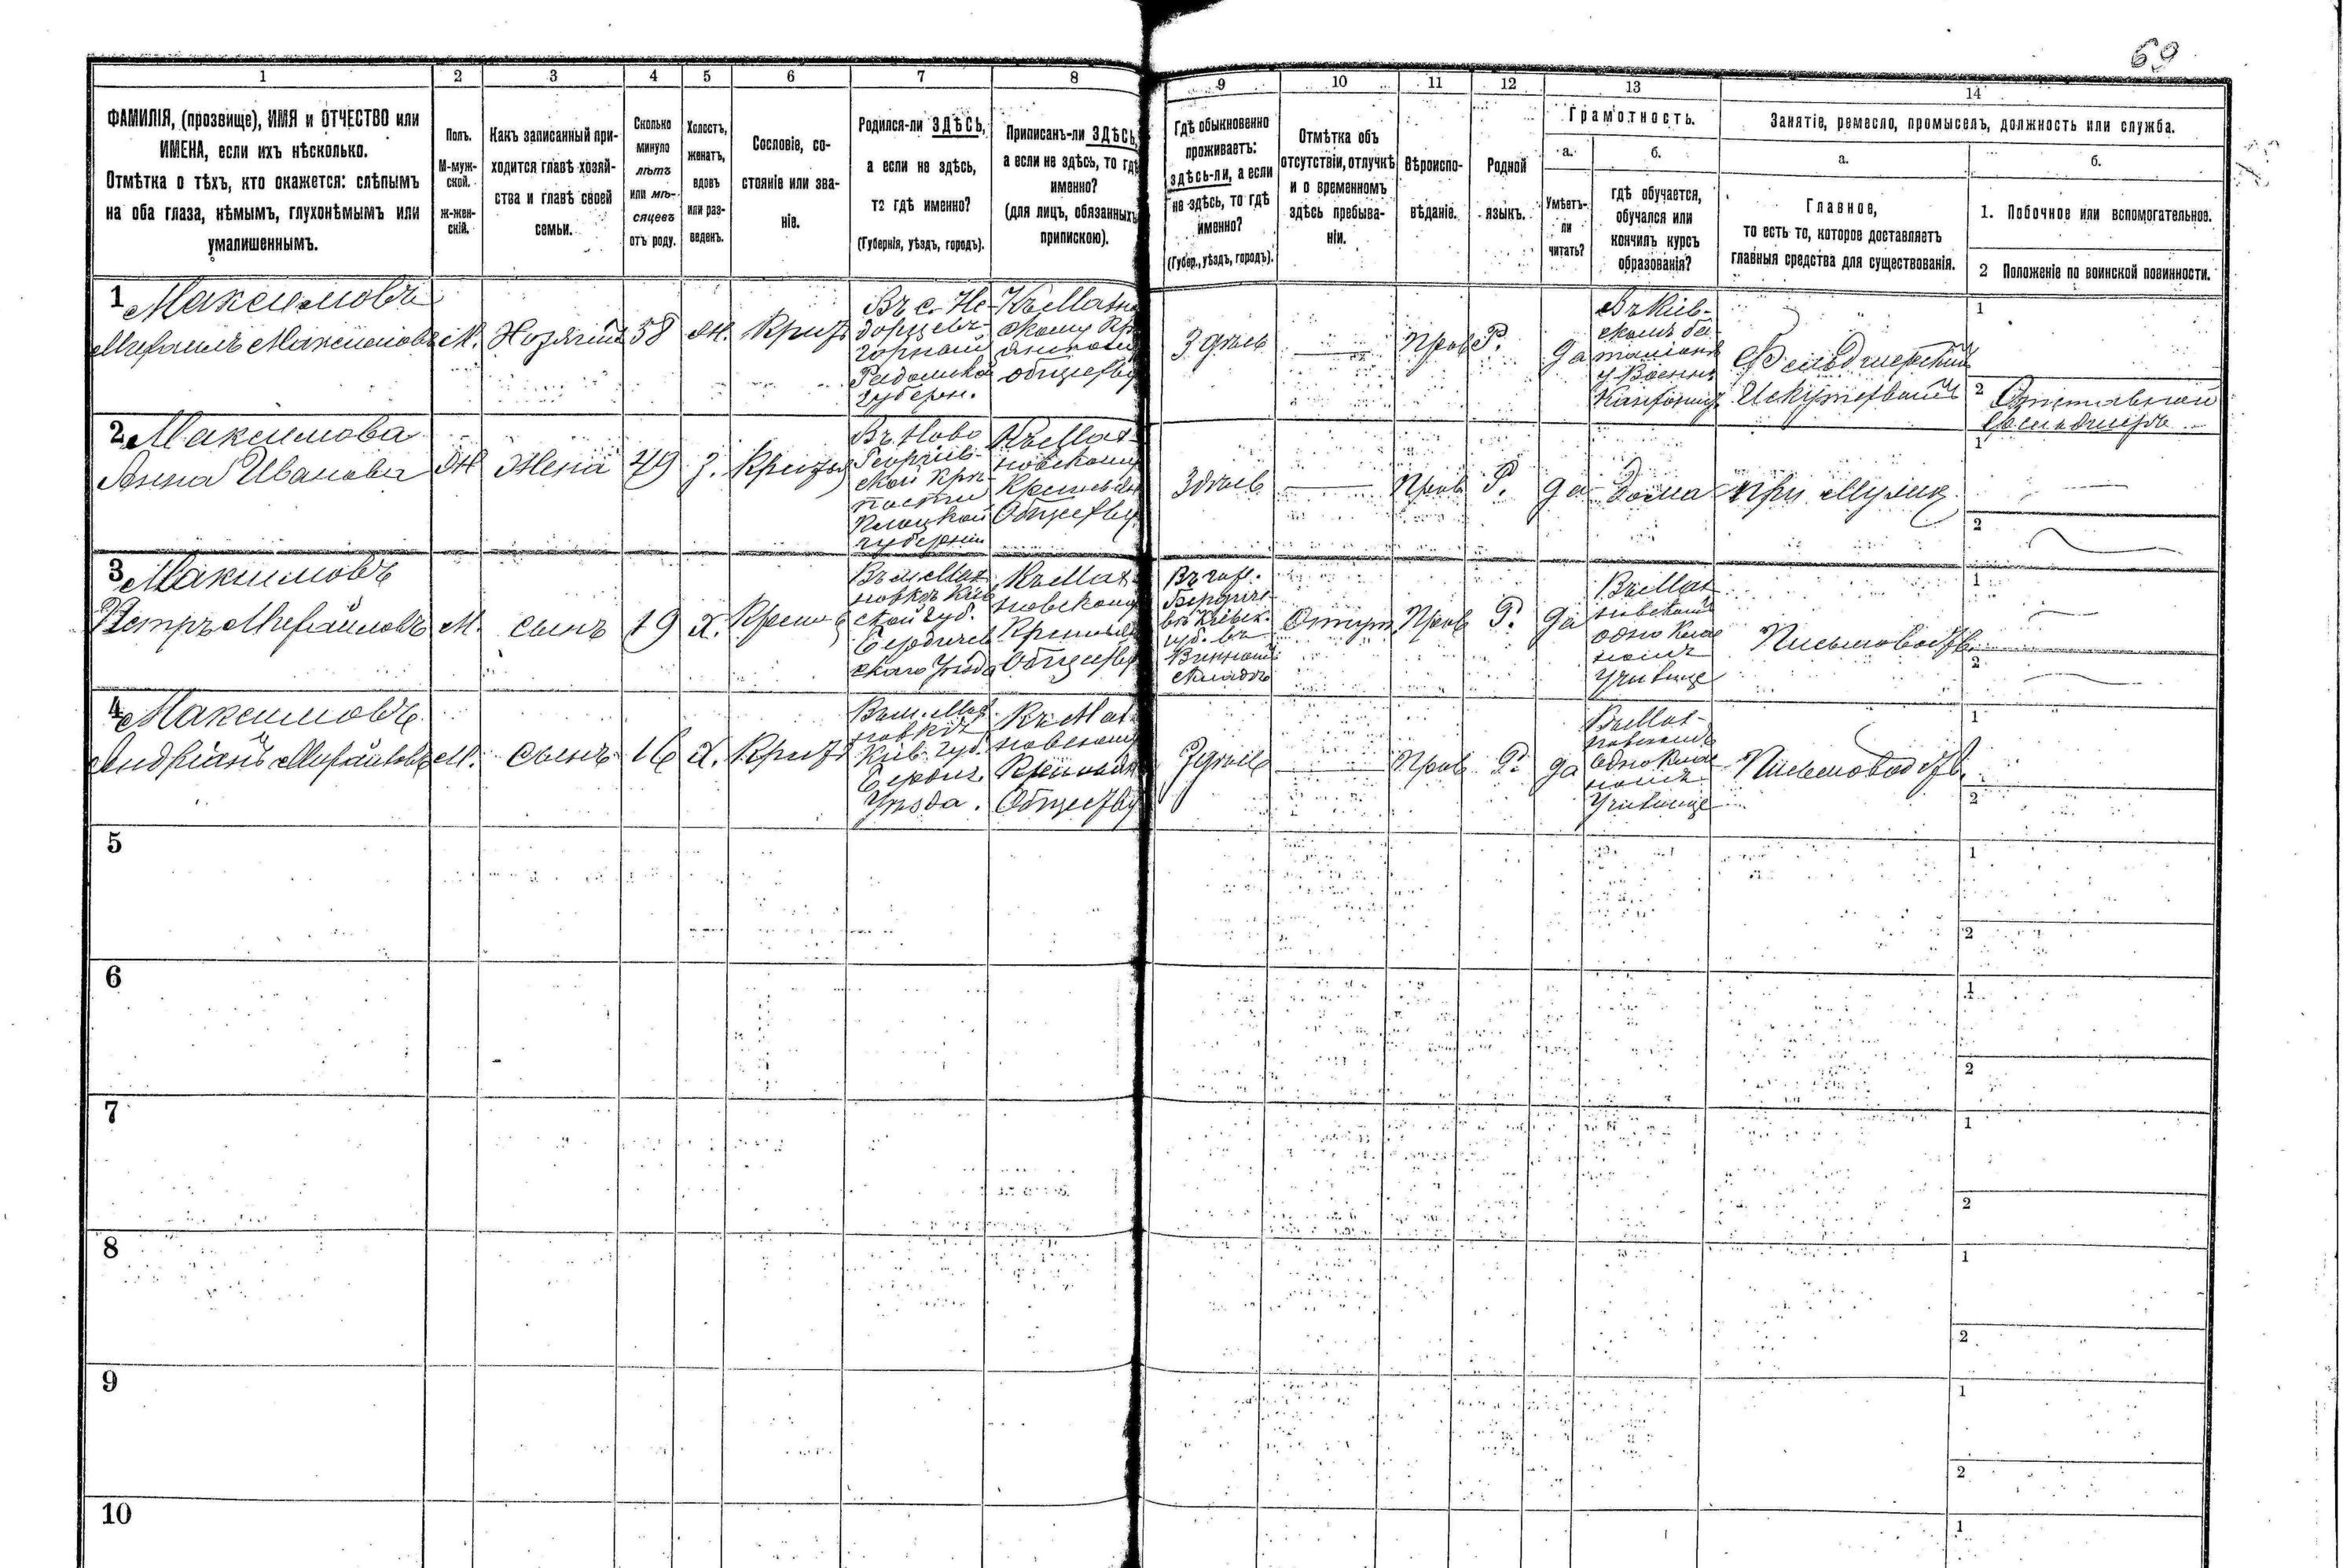 69
1
2
3
4
5
6
7
8
9
10
11
12
13
14
ФАМИЛІЯ, (прозвище), ИМЯ и ОТЧЕСТВО или
ИМЕНА, если ихъ нѣсколько.
Отмѣтка о тѣхъ, кто окажется: слѣпымъ
на оба глаза, нѣмымъ, глухонѣмымъ или
умалишеннымъ.
Полъ.
М-муж-
ской.
ж-жен-
скій.
Какъ записанный при-
ходится главѣ хозяй-
ства и главѣ своей
семьи.
Сколько
минуло
лѣтъ
или мѣ-
сяцевъ
отъ роду.
Холостъ,
женатъ,
вдовъ
или раз-
веденъ.
Сословіе, со-
стояніе или зва-
ніе.
Родился-ли ЗДѢСЬ,
а если не здѣсь,
то гдѣ именно?
(Губернія, уѣздъ, городъ).
Приписанъ-ли ЗДѢСЬ,
а если не здѣсь, то гдѣ
именно?
(для лицъ, обязанныхъ
припискою).
Гдѣ обыкновенно
проживаетъ:
здѣсь-ли, а если
не здѣсь, то гдѣ
именно?
(Губер., уѣздъ, городъ).
Отмѣтка объ
отсутствіи, отлучкѣ
и о временномъ
здѣсь пребыва-
ніи.
Вѣроиспо-
вѣданіе.
Родной
языкъ.
Грамотность.
а.
Умѣетъ-
ли
читать?
б.
гдѣ обучается,
обучался или
кончилъ курсъ
образованія?
Занятіе, ремесло, промыселъ, должность или служба.
а.
Главное,
то есть то, которое доставляетъ
главныя средства для существованія.
б.
1. Побочное или вспомогательное.
2 Положеніе по воинской повинности.
1 Максимовъ
Михаилъ Максимовъ
М.
Хозяинъ
58
Ж.
Въ с.
Радомской
губерн.
обществу
Здѣсь
Прав
Р.
да
Въ Кіев-
скомъ ба-
таліонѣ
Фельдшерский
1
2 Отставной
Фельдшеръ
2 Максимова
Анна Иванова
Ж
Жена
49
З.
Въ Ново
Георгіев-
ской Крѣ-
пости
Плоцкой
губерніи
Къ Мах-
новскому
Обществу
Здѣсь
Прав
Р.
да
Дома
при мужѣ
1
2
3 Максимовъ
Петръ Михайловъ
М.
сынъ
19
Х.
Въ м. Мах-
новкѣ Кіев
ской губ.
Бердичев
скаго Уѣзда
Къ Мах-
новскому
Обществу
Въ гор.
Бердиче-
вѣ Кіевск.
губ. въ
Винномъ
складѣ
Прав
Р.
да
Въ Мах-
новскомъ
одноклас
номъ
Училище
Письмоводств.
1
2
4 Максимовъ
Андріанъ Михайловъ
М.
сынъ
16
Х.
Въ м. Мах-
новкѣ
Кіев. губ.
Бердич.
Уѣзда.
Къ Мах-
новскому
Обществу
Здѣсь
Прав
Р.
да
Въ Мах-
новскомъ
одноклас
номъ
Училище
Письмоводств.
1
2
5
1
2
6
1
2
7
1
2
8
1
2
9
1
2
10
1